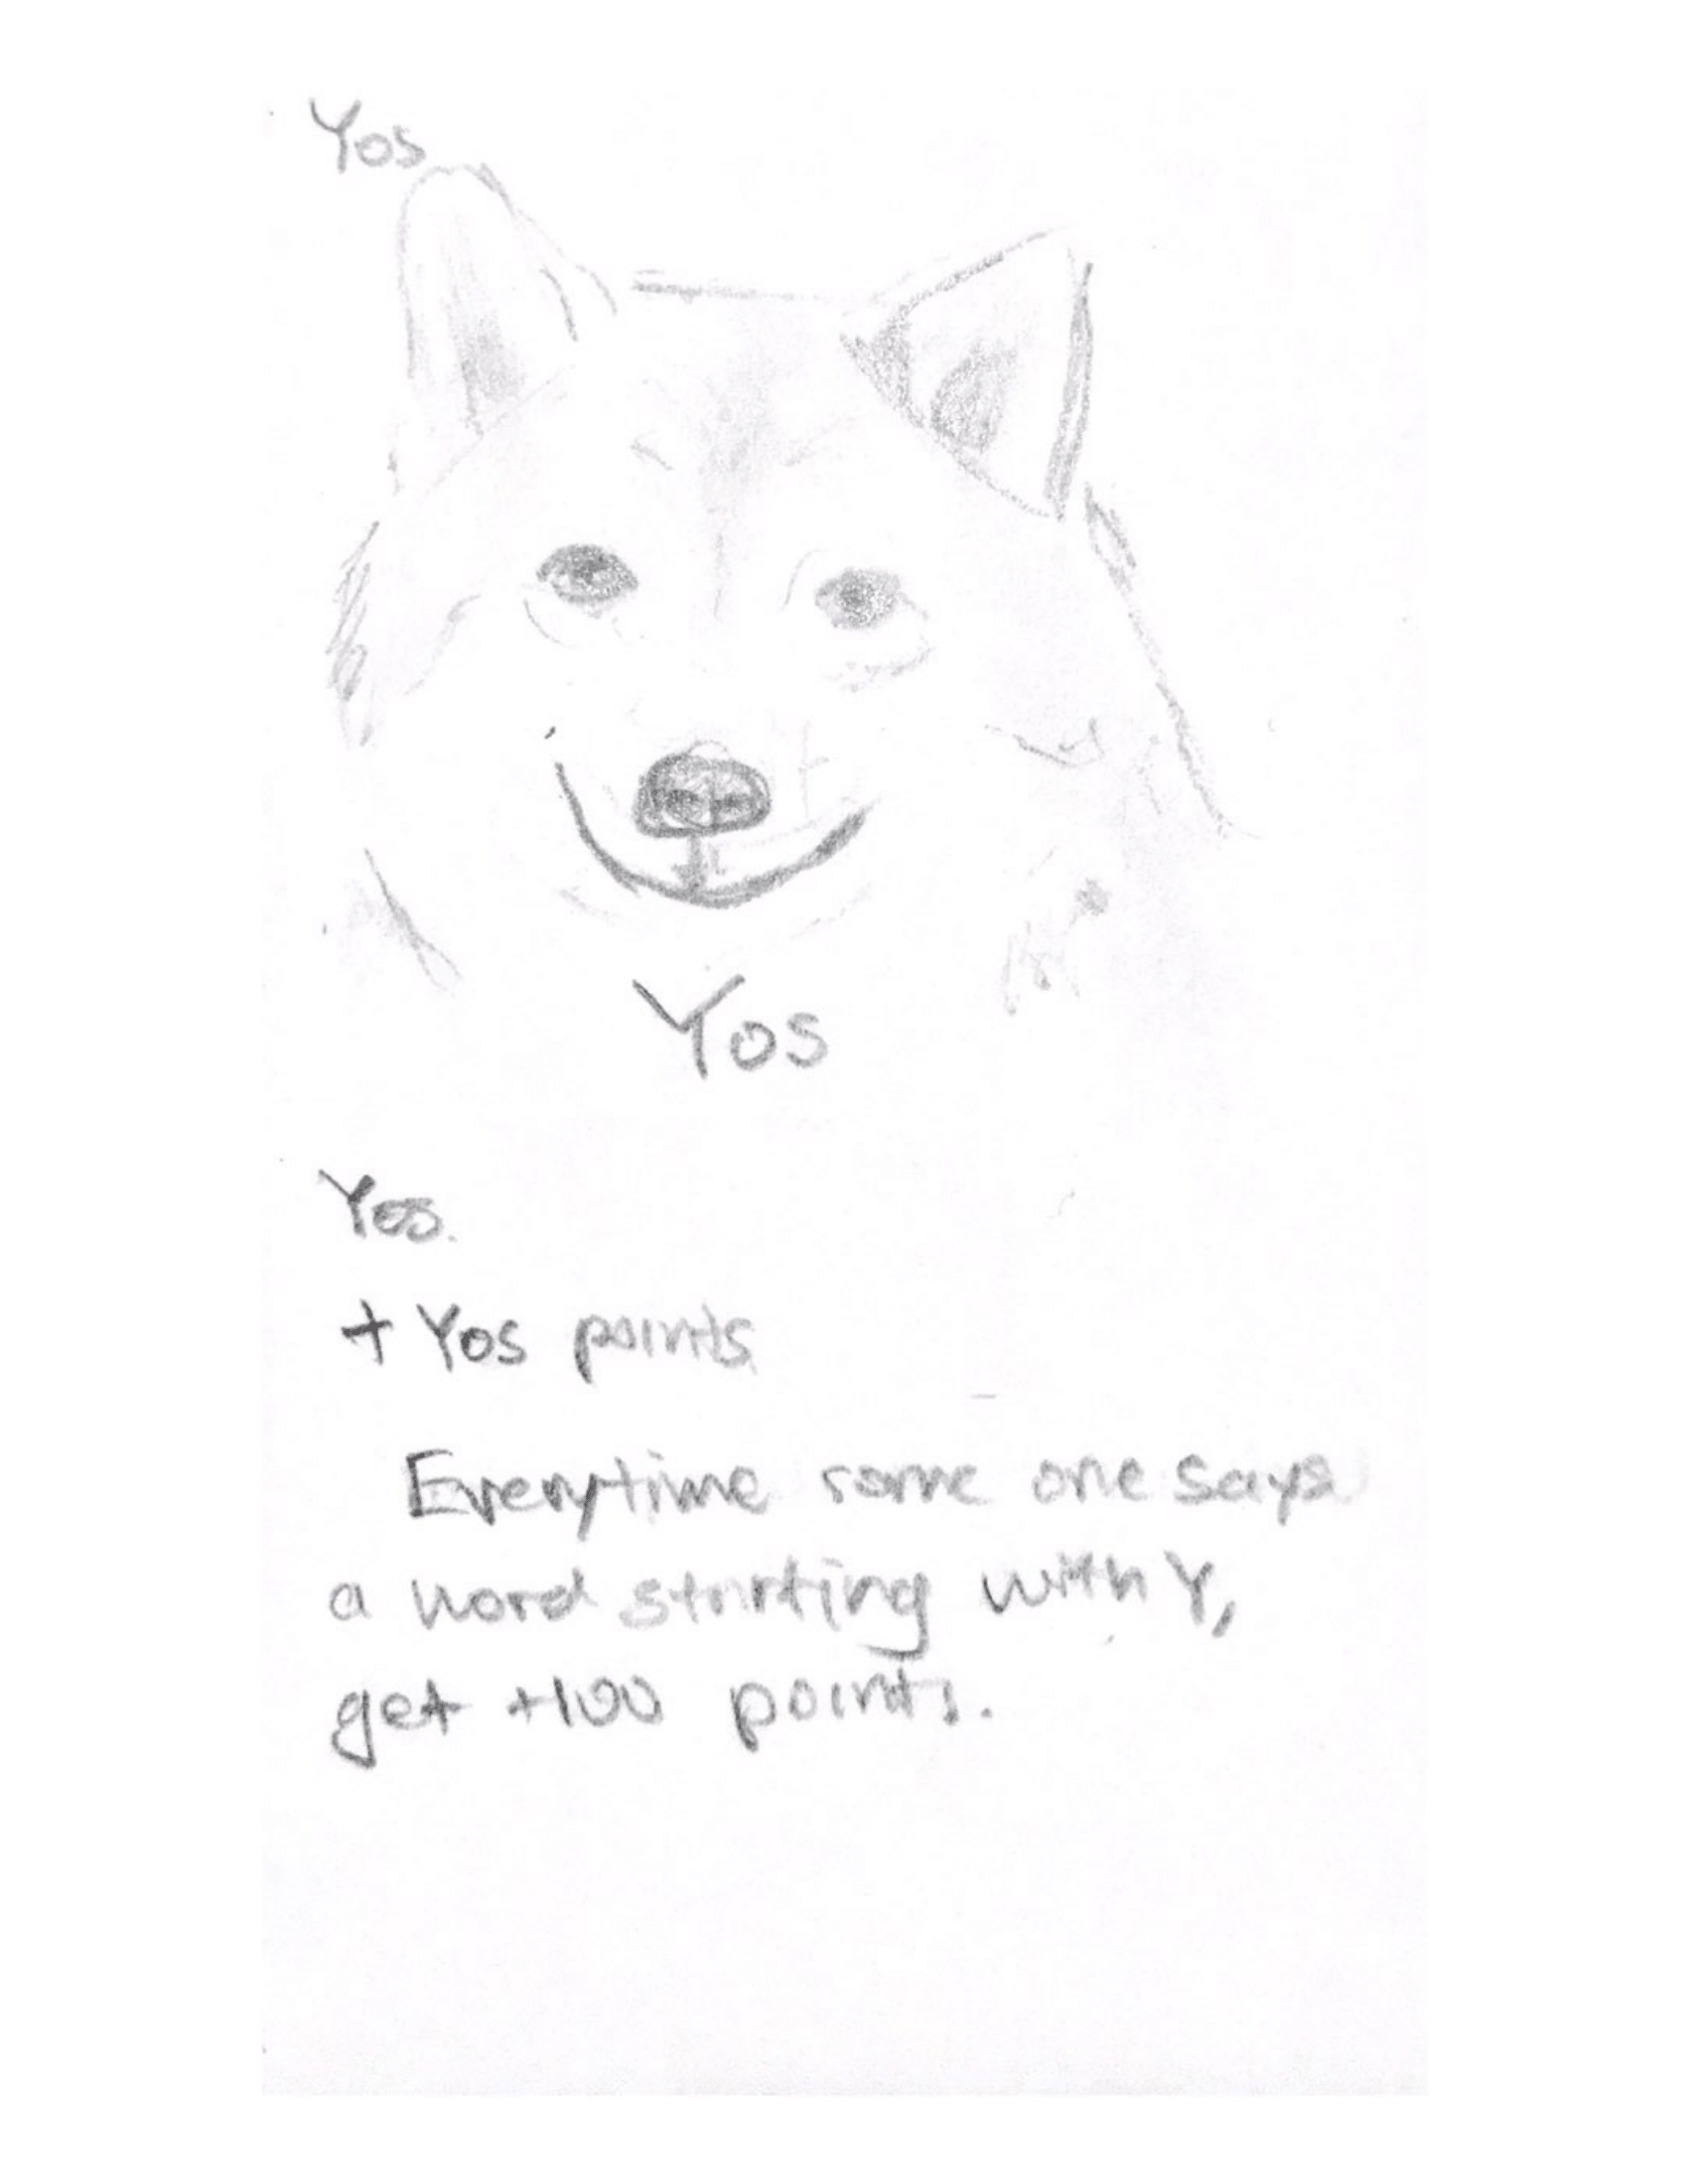 Yos
Yos
Yos.
+ Yos points
Everytime some one says
a word starting with Y,
get +100 points.